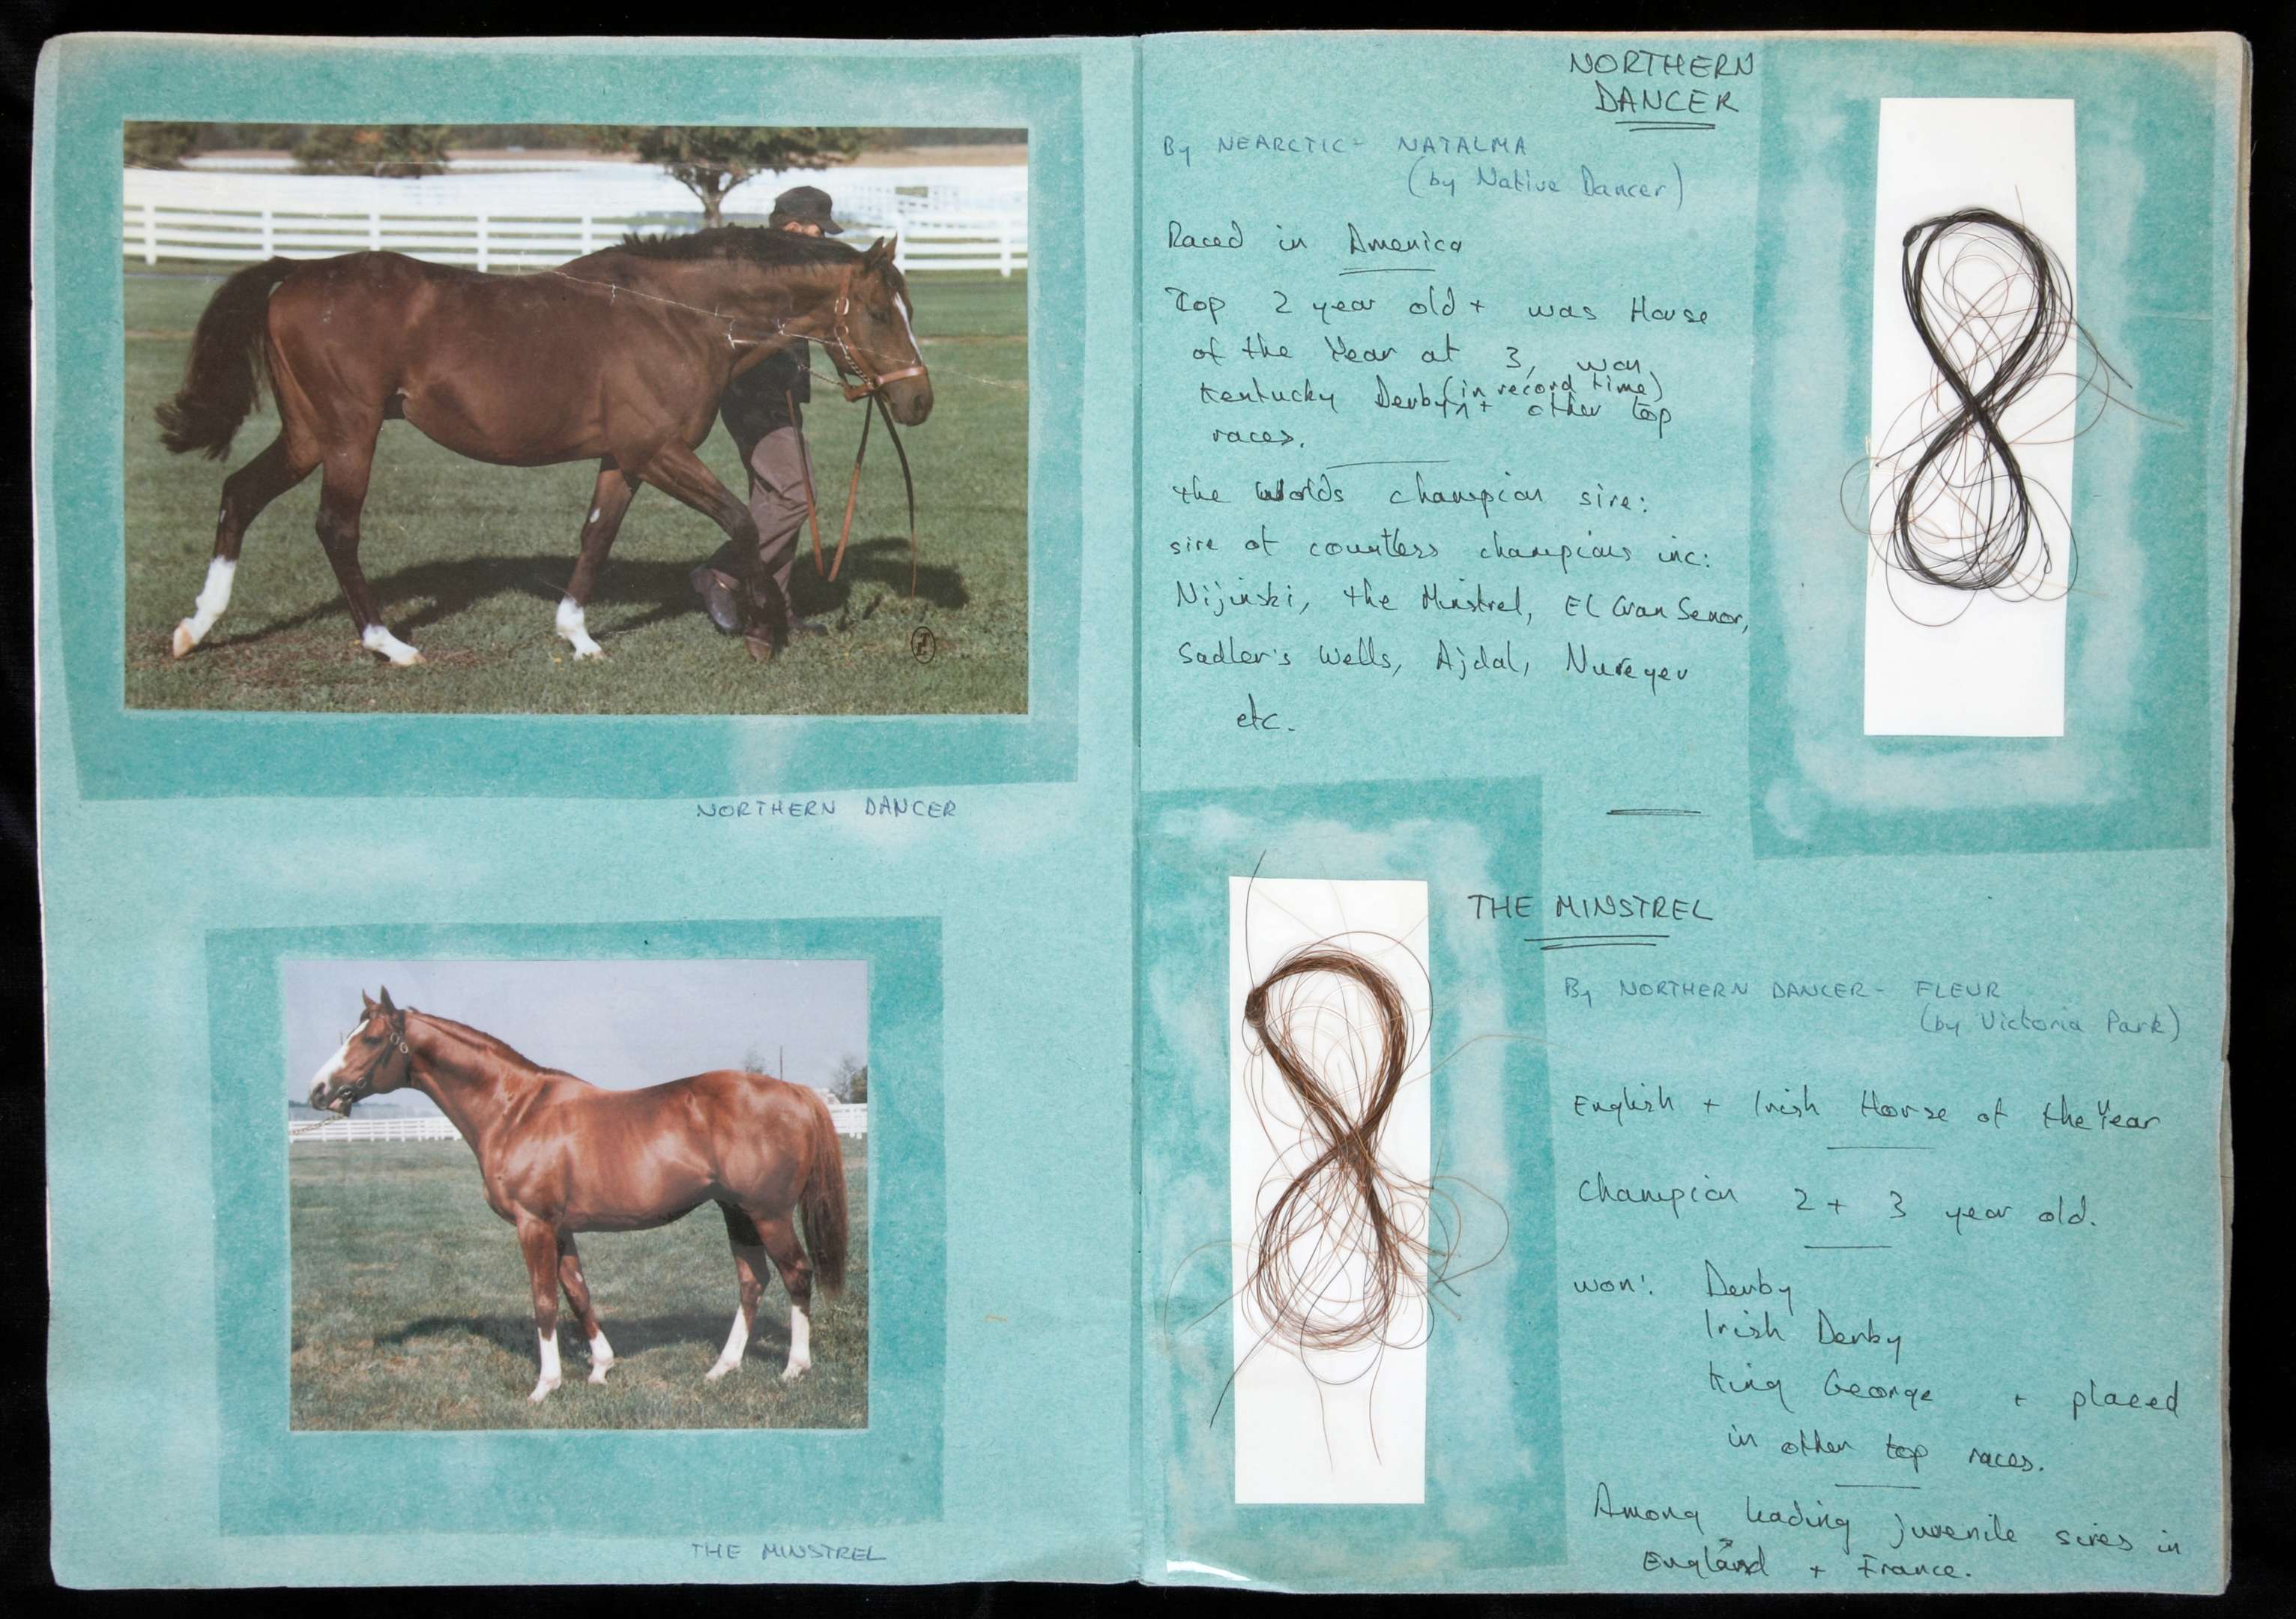 NORTHERN DANCER
THE MINSTREL
NORTHERN
DANCER
By NEARCTIC - NATALMA
(by Native Dancer)
Raced in America
Top 2 year old + was Horse
of the Year at 3, won
Kentucky Derby (in record time) + other top
races.
the Worlds champion sire:
sire of countless champions inc:
Nijinski, the Minstrel, El Gran Senor,
Sadler's Wells, Ajdal, Nureyev
etc.
THE MINSTREL
By NORTHERN DANCER - FLEUR
(by Victoria Park)
English + Irish Horse of the Year
Champion 2 + 3 year old.
won: Derby
Irish Derby
King George + placed
in other top races.
Among leading juvenile sires in
England + France.